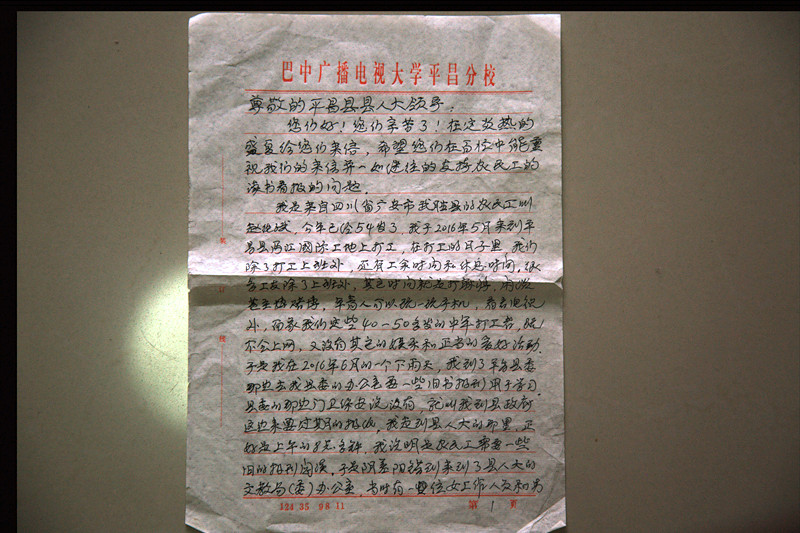 巴中广播电视大学平昌分校
尊敬的平昌县县人大领导：
您们好！您们辛苦了！在这炎热的
盛夏给您们来信，希望您们在百忙中能重
视我们的来信并一如继往的支持农民工的
读书看报的问题。
我是来自四川省广安市武胜县的农民工叫
今年已经54岁了，我于2016年5月来到平
昌县 江国际工地上打工，在打工的日子里，我们
除了打工上班外，还有工余时间和休息时间，很
多工友除了上班外，其它时间就是打麻将，斗地
主 赌博，年青人可以玩一玩手机，看看电视
外，而象我们这些40—50多岁的中年打工者，既
不会上网，又没有其它的娱乐和正当的爱好活动。
于是我在2016年6月的一个下雨天，我到了平昌县委
那边去找县委的办公室要一些旧书报刊用于学习，
县委的那边门卫保安说没有，就叫我到县政府
这边来要过期的报纸。我走到县人大的那里，正
好是上午的8点多钟，我说明是农民工需要一些
旧的报刊阅读，于是阴差阳错到来到了县人大的
文教局(委)办公室，当时有一 位女工作人员和男
124 35 98 11
第 1 页